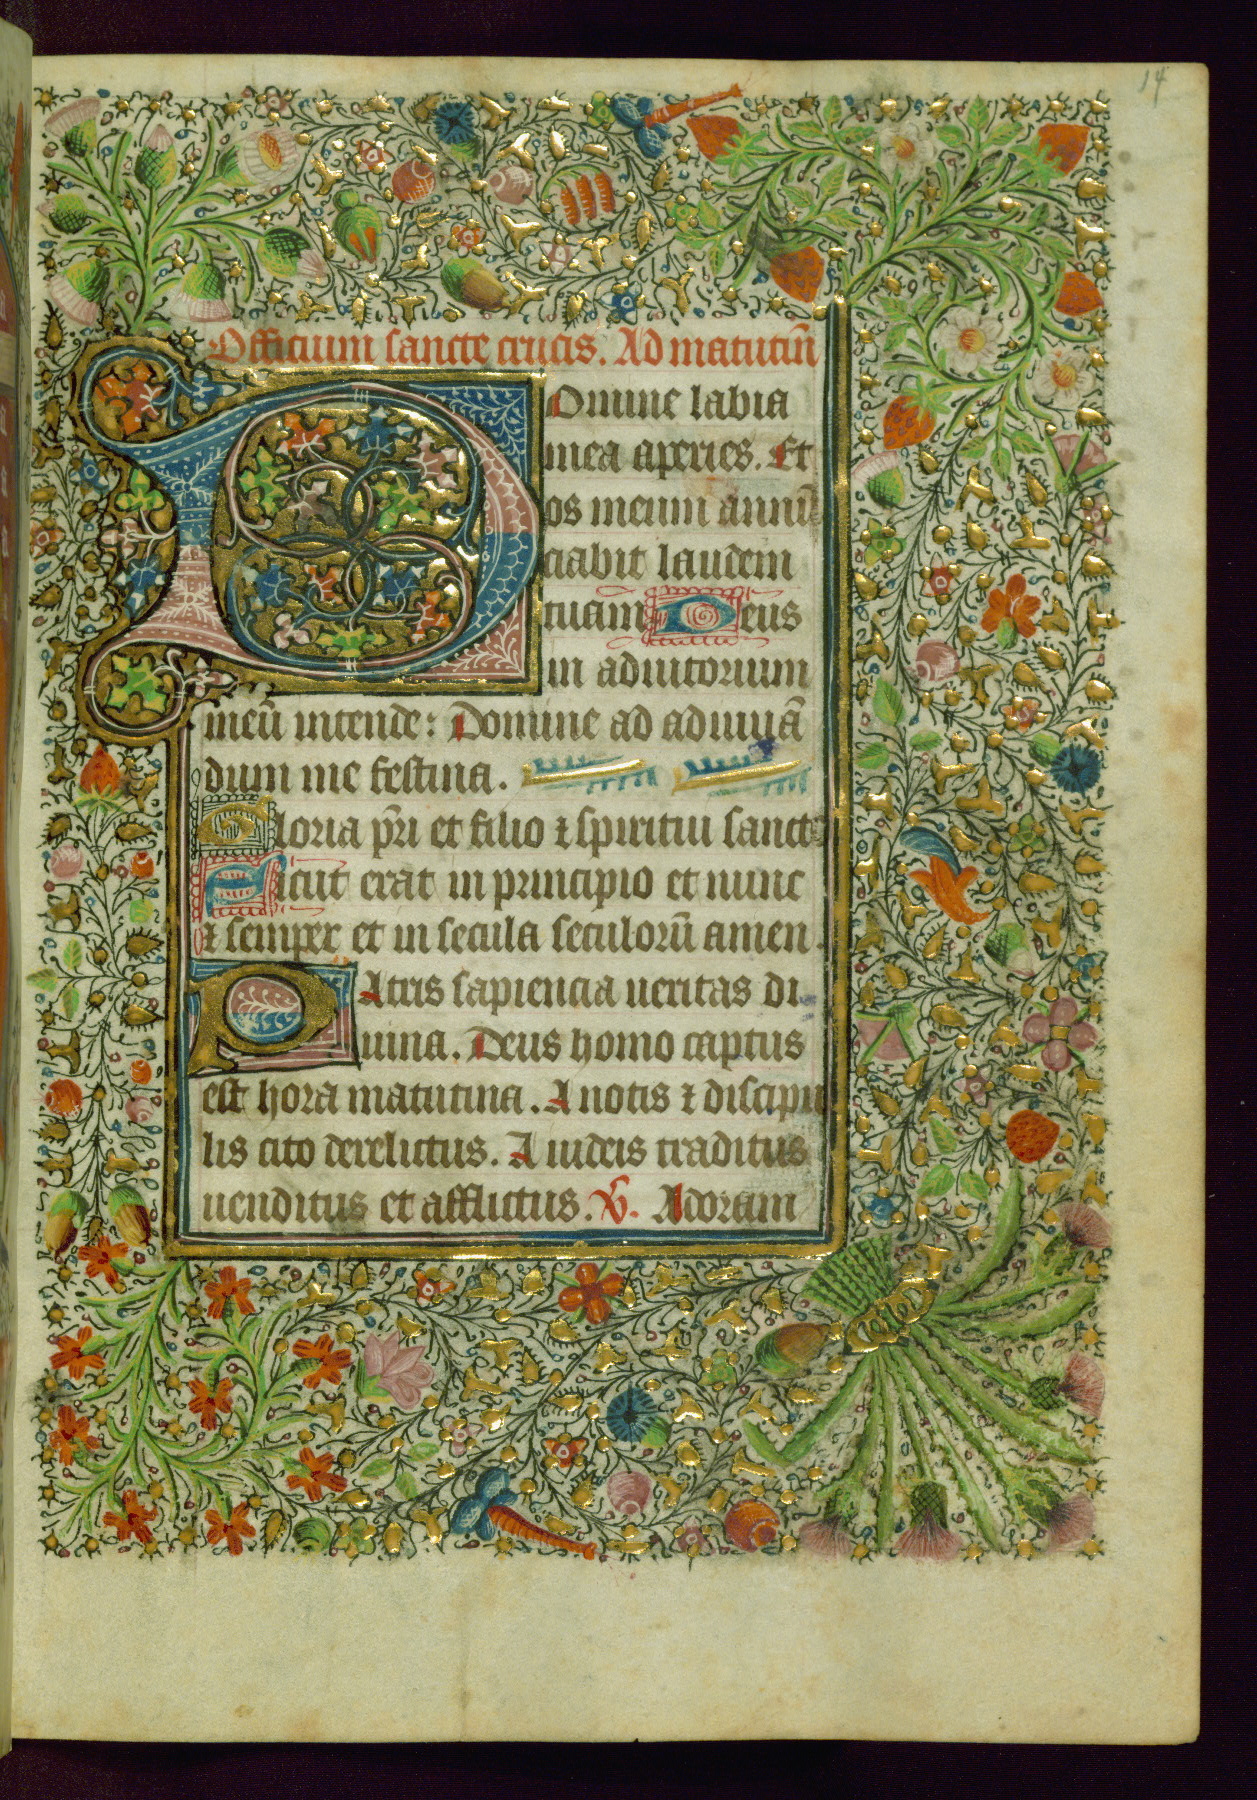 14
Officium sancte crucis. Ad matutin̄
Domine labia
mea aperies. Et
os meum annū
ciabit laudem
tuam Deus
in adiutorium
meū intende: Domine ad adiuuā
dum me festina.
Gloria pr̄i et filio ⁊ spiritui sancto
Sicut erat in principio et nunc
⁊ semper et in secula seculorū amen.
PAtris sapiencia ueritas di
uina. Deus homo captus
est hora matutina. A notis ⁊ discipu
lis cito derelictus. A iudeis traditus
uenditus et afflictus. V̄. Adoram